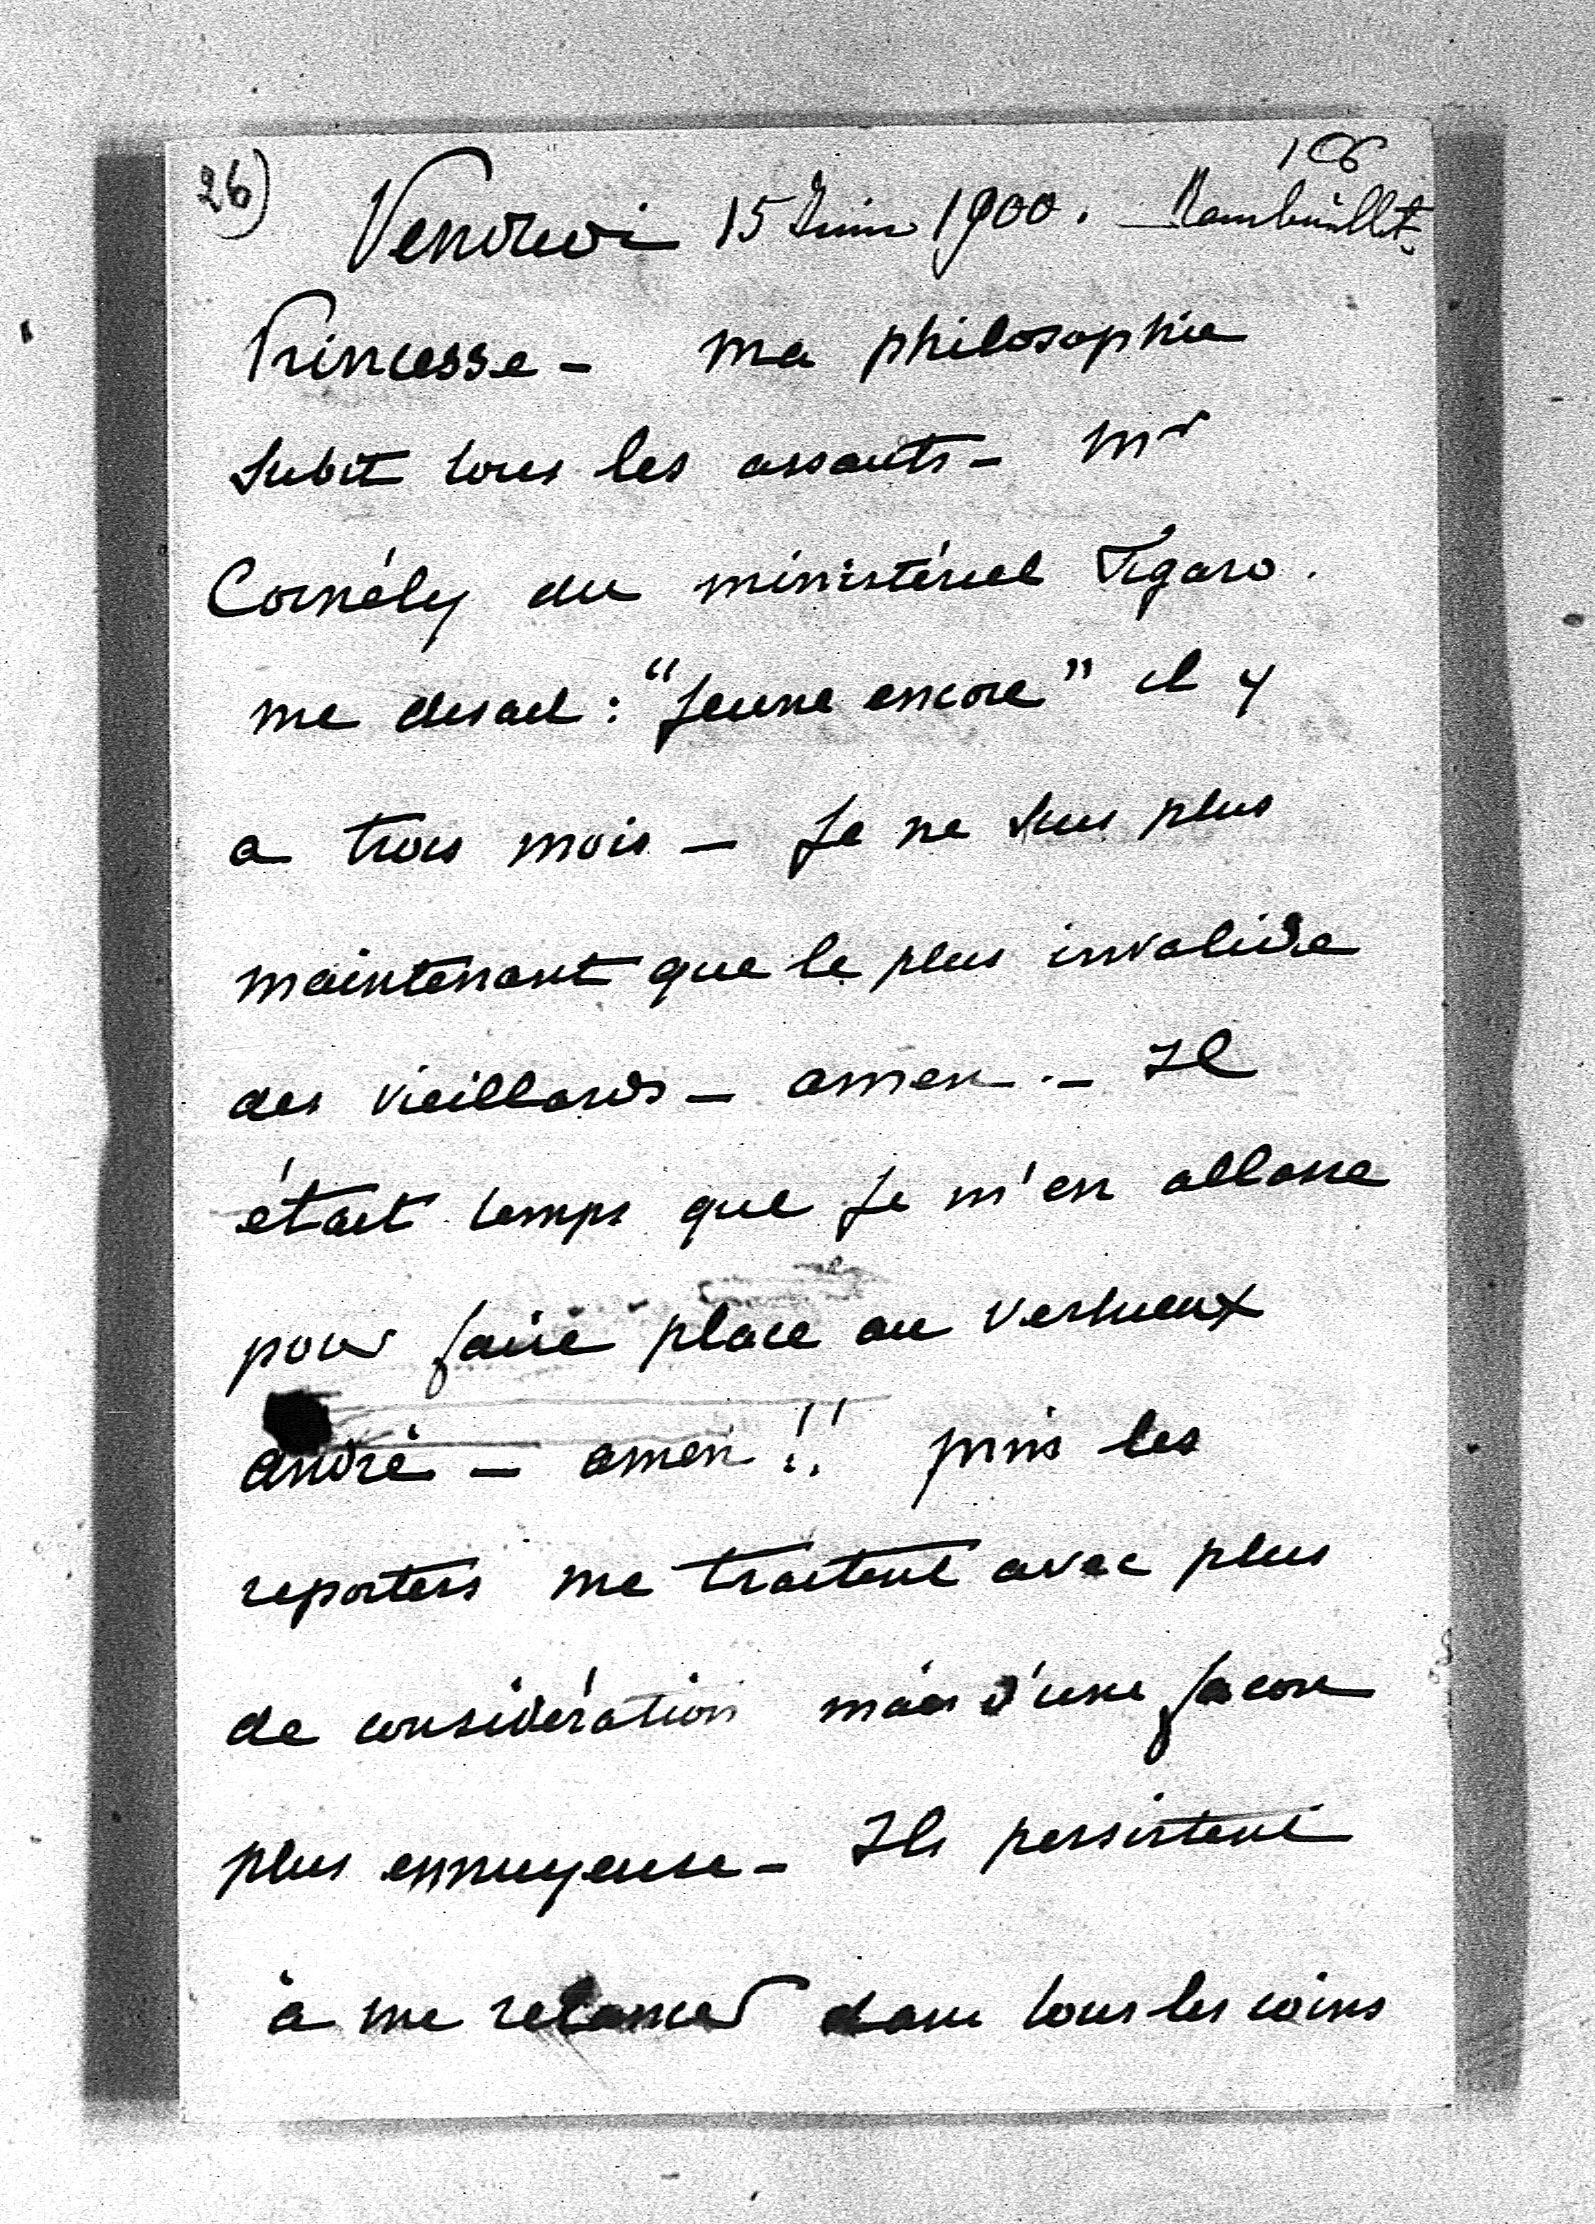 26)
106
Vendredi 15 Juin 1900. Rambouillet.
Princesse - ma philosophie
subit tous les assauts - Mr
Cornély du ministériel Figaro.
me disait : "Jeune encore" il y
a trois mois - Je ne suis plus
maintenant que le plus invalide
des vieillards - amen. - Il
était temps que je m'en allasse
pour faire place au vertueux
andré - amen !! puis les
reporters me traitent avec plus
de considération mais d'une facon
plus ennuyeuse - Ils persistent
à me relancer dans tous les coins